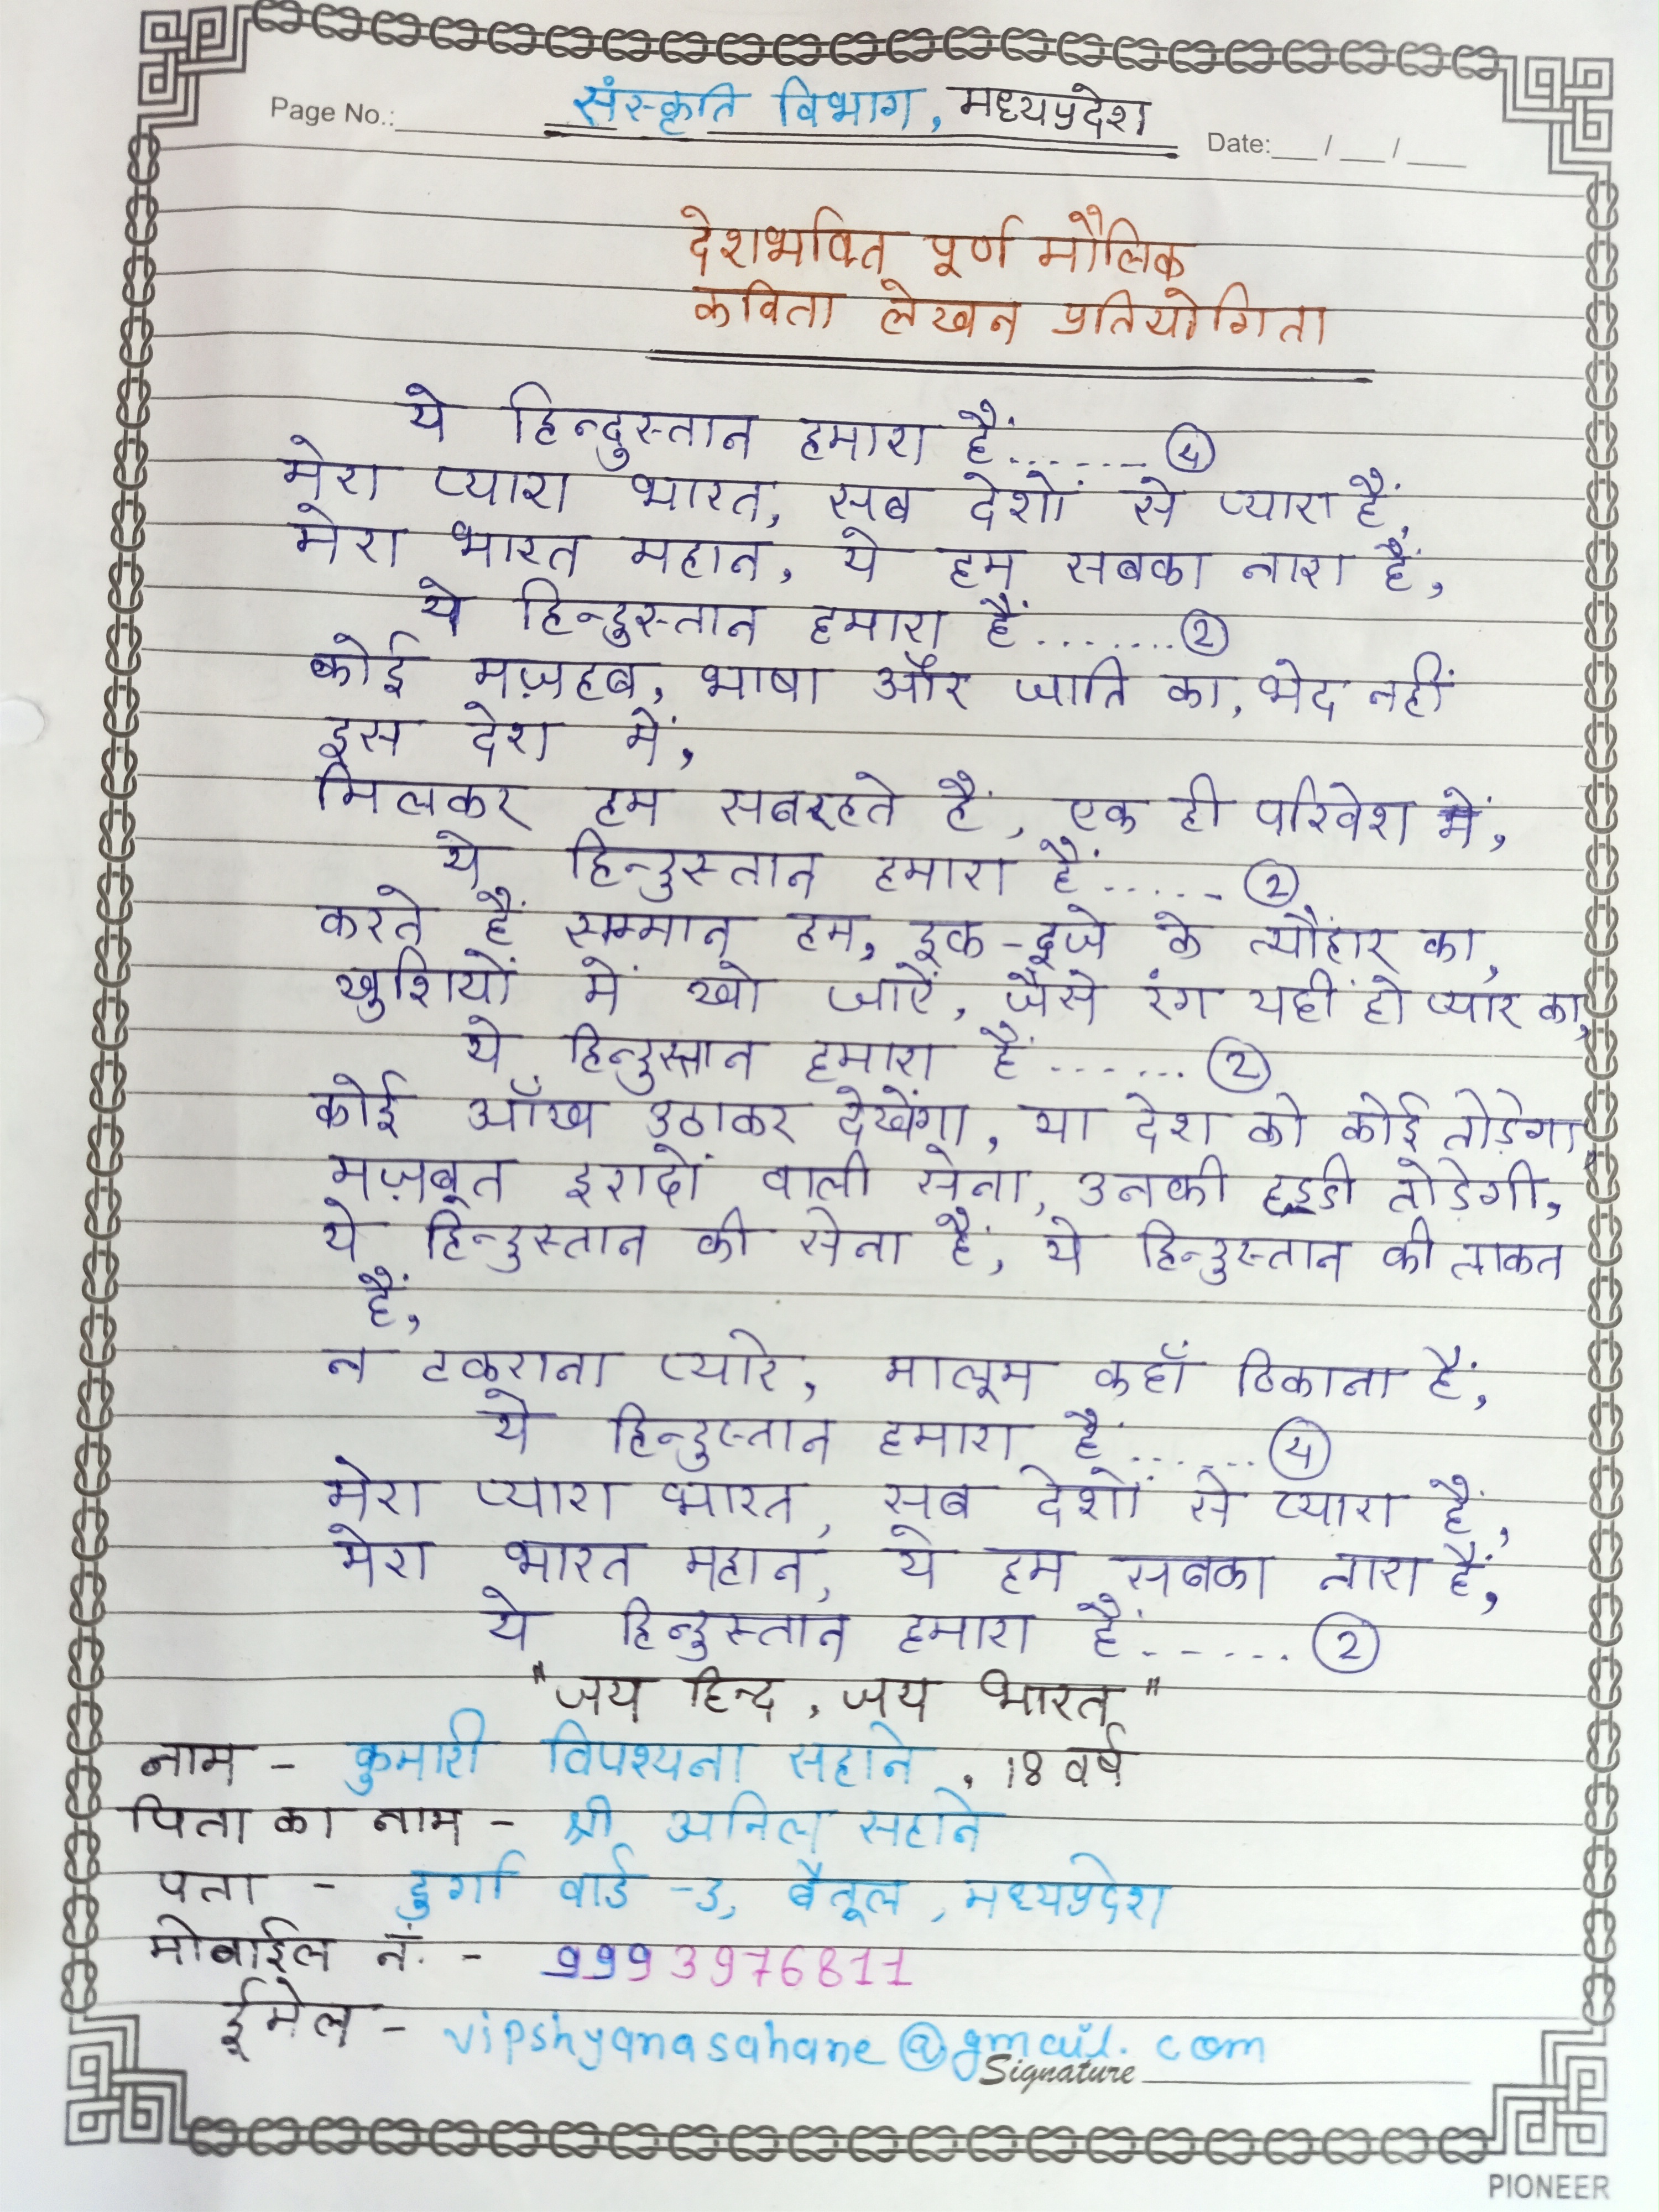 संस्कृति विभाग, मध्यप्रदेश
Page No.:
Date: / /
देशभक्ति पूर्ण मौलिक
कविता लेखन प्रतियोगिता
ये हिन्दुस्तान हमारा हैं....... ④
मेरा प्यारा भारत, सब देशों से प्यारा हैं,
मेरा भारत महान, ये हम सबका नारा हैं,
ये हिन्दुस्तान हमारा हैं........②
कोई मज़हब, भाषा और जाति का, भेद नहीं
इस देश में,
मिलकर हम सब रहते हैं, एक ही परिवेश में,
ये हिन्दुस्तान हमारा हैं...... ②
करते हैं सम्मान हम, इक-दूजे के त्यौहार का,
खुशियों में खो जाऐं, जैसे रंग यहीं हो प्यार का,
ये हिन्दुस्तान हमारा हैं....... ②
कोई आँख उठाकर देखेंगा, या देश को कोई तोड़ेगा,
मज़बूत इरादों वाली सेना, उनकी हड्डी तोड़ेगी,
ये हिन्दुस्तान की सेना हैं, ये हिन्दुस्तान की ताकत
हैं,
न टकराना प्यारे, मालूम कहाँ ठिकाना हैं,
ये हिन्दुस्तान हमारा हैं....... ④
मेरा प्यारा भारत, सब देशों से प्यारा हैं,
मेरा भारत महान, ये हम सबका नारा हैं,
ये हिन्दुस्तान हमारा हैं....... ②
"जय हिन्द, जय भारत"
नाम - कुमारी विपश्यना सहाने, 18 वर्ष
पिता का नाम - श्री अनिल सहाने
पता - दुर्गा वार्ड -3, बैतूल, मध्यप्रदेश
मोबाईल नं. - 9993976811
ईमेल - vipshyanasahane@gmail.com
Signature
PIONEER